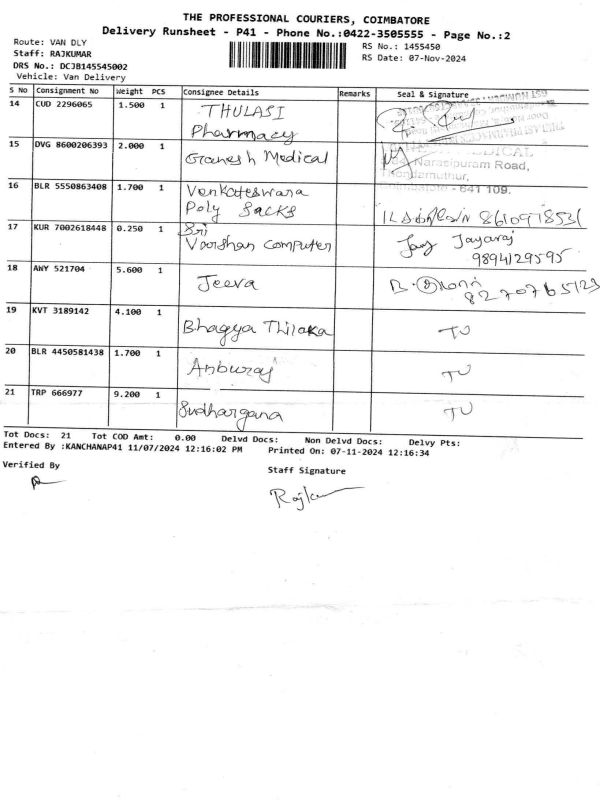 THE PROFESSIONAL COURIERS, COIMBATORE
Delivery Runsheet - P41 - Phone No.:0422-3505555 - Page No.:2
Route: VAN DLY
Staff: RAJKUMAR
DRS No.: DCJB145545002
Vehicle: Van Delivery
RS No.: 1455450
RS Date: 07-Nov-2024
S No Consignment No Weight PCS Consignee Details Remarks Seal & Signature
14 CUD 2296065 1.500 1 THULASI
Pharmacy
15 DVG 8600206393 2.000 1 Ganesh Medical
MEDICAL
Narasipuram Road,
Thondamuthur,
Coimbatore - 641 109.
16 BLR 5550863408 1.700 1 Venkateswara
Poly Sacks
8610918531
17 KUR 7002618448 0.250 1 Sri
Varshan Computer
Jay Jayaraj
9894129595
18 AWY 521704 5.600 1 Jeeva
8270765123
19 KVT 3189142 4.100 1 Bhagya Thilaka TU
20 BLR 4450581438 1.700 1 Anburaj TU
21 TRP 666977 9.200 1 Sudhargana TU
Tot Docs: 21 Tot COD Amt: 0.00 Delvd Docs: Non Delvd Docs: Delvy Pts:
Entered By :KANCHANAP41 11/07/2024 12:16:02 PM Printed On: 07-11-2024 12:16:34
Verified By
Staff Signature
Rajku